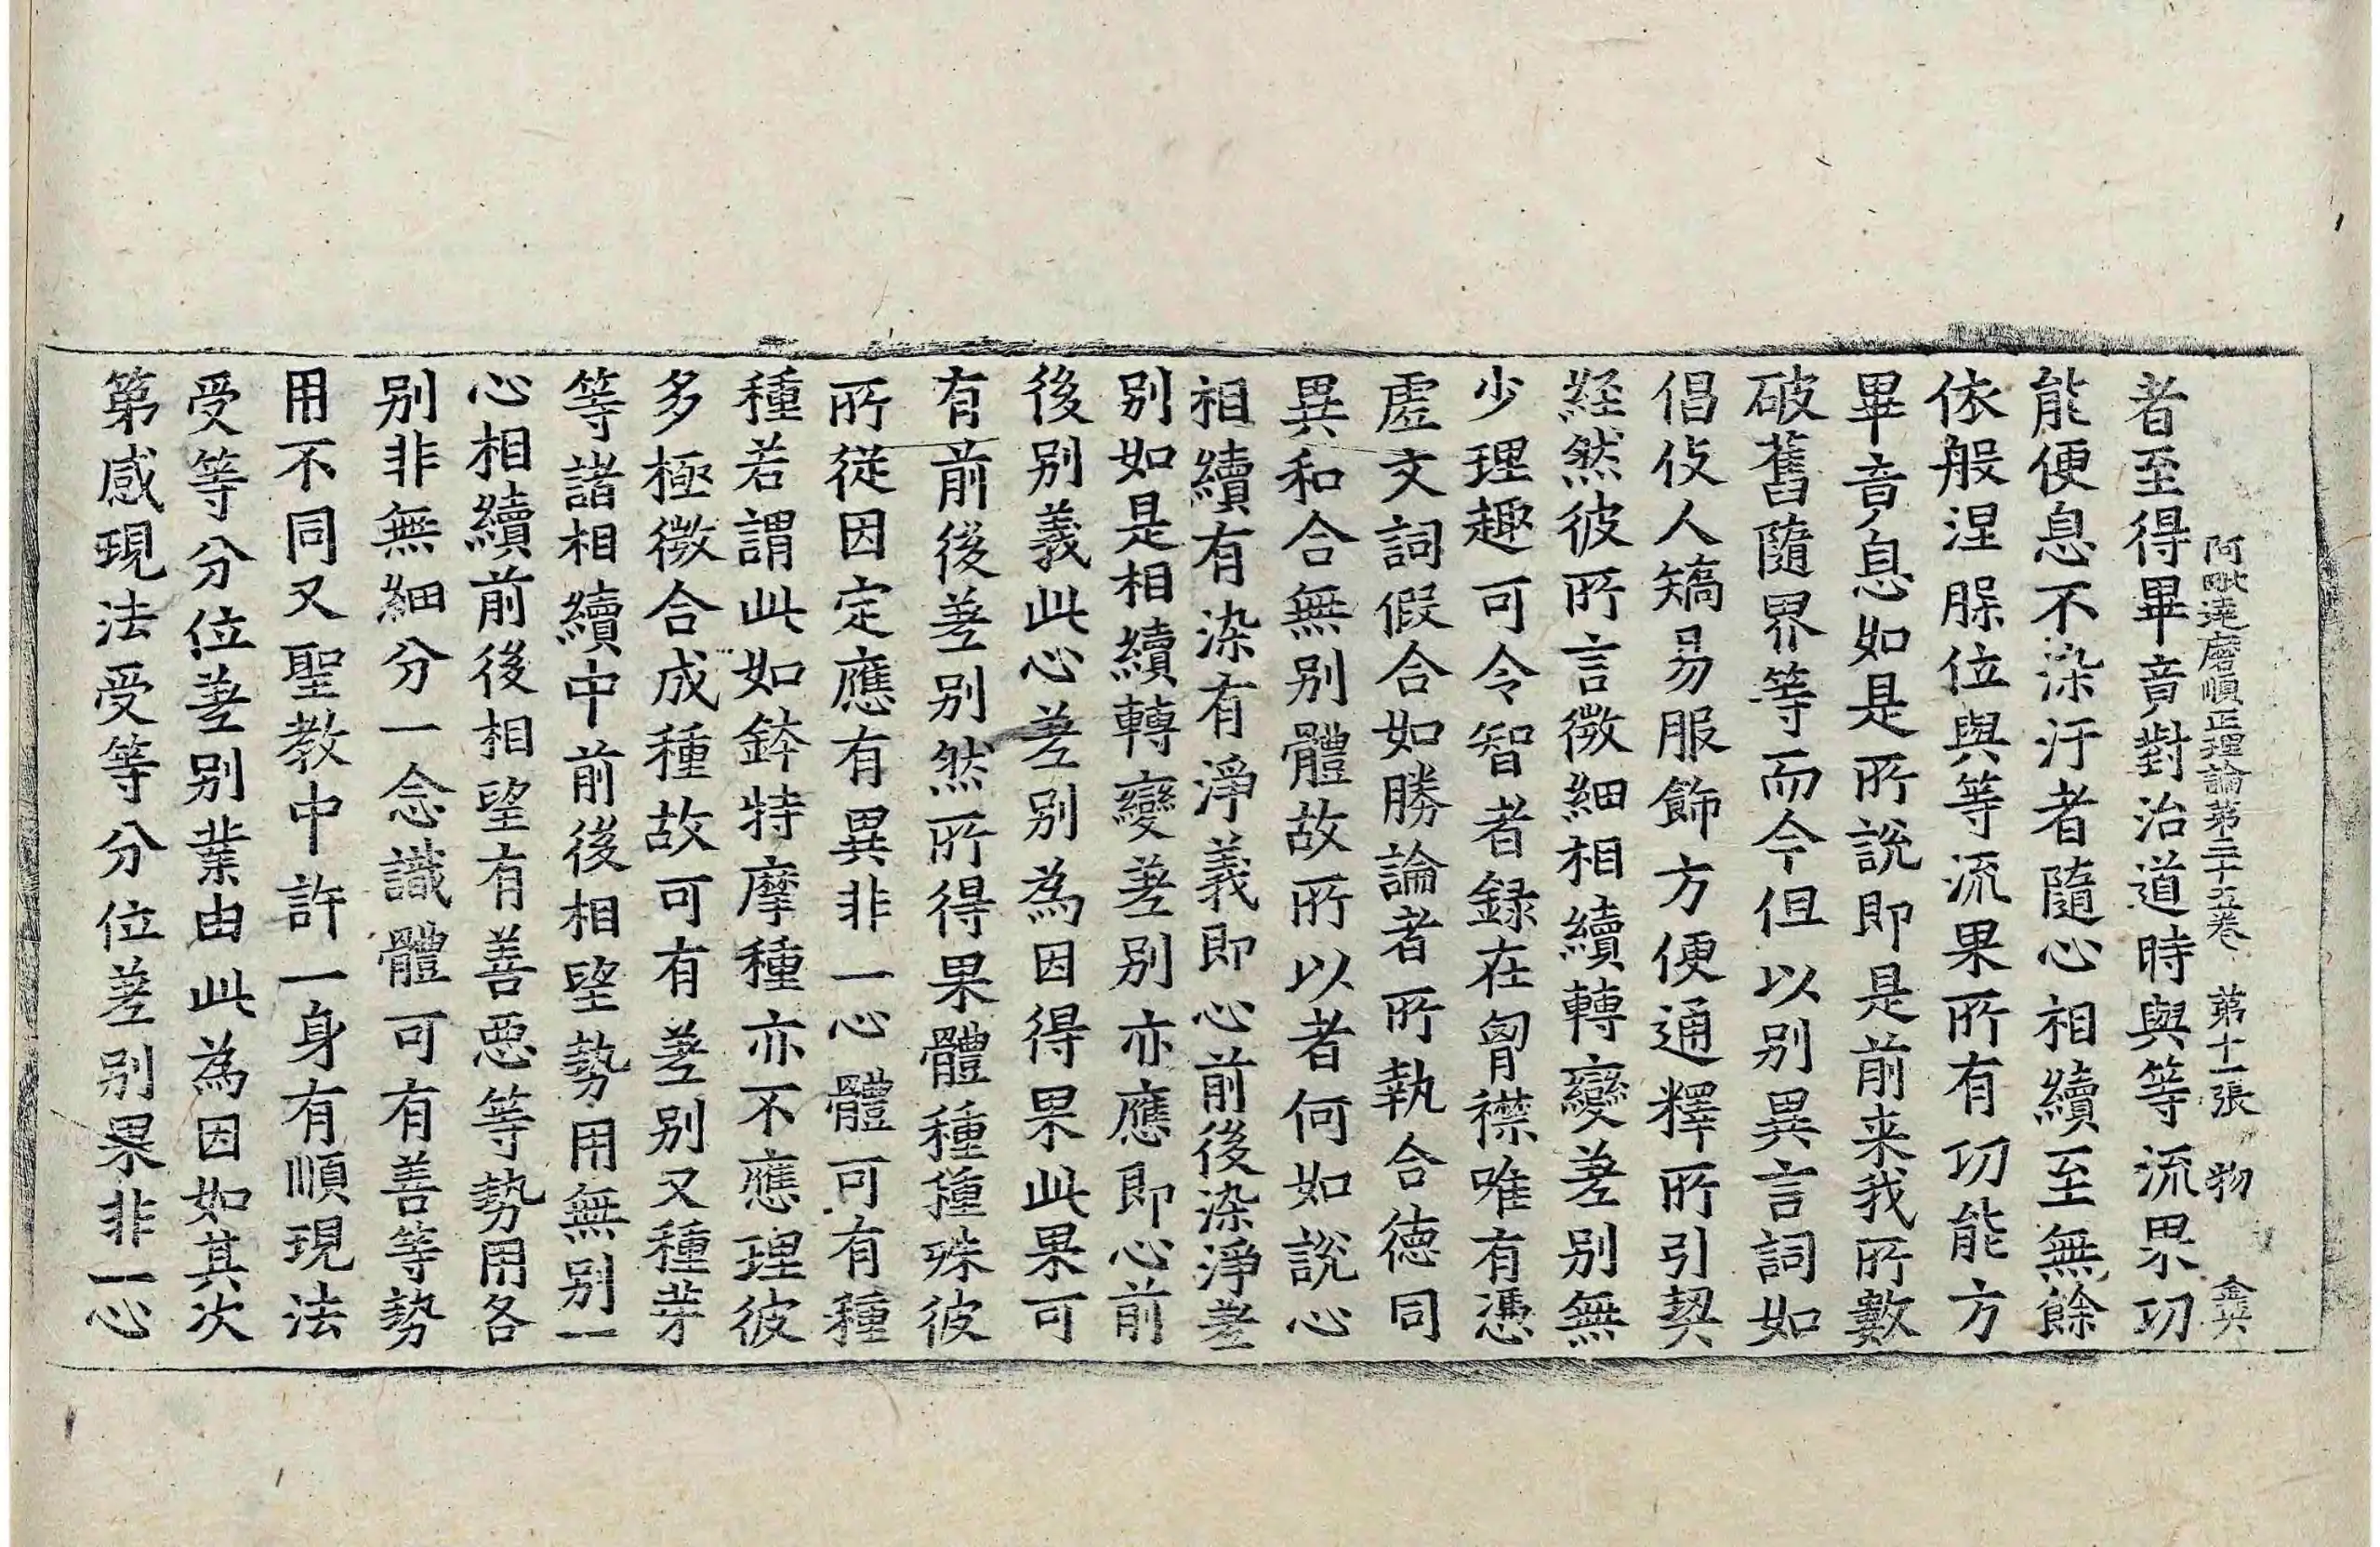 阿毗達磨順正理論第三十五卷 第十一張 物 金英
者至得畢竟對治道時與等流果功
能便息不染汙者隨心相續至無餘
依般涅脲位與等流果所有功能方
畢竟息如是所說即是前来我所數
破舊隨界等而今但以別異言詞如
倡伎人矯易服飾方便通釋所引契
経然彼所言微細相續轉變差別無
少理趣可令智者録在胷襟唯有憑
虛文詞假合如勝論者所執合徳同
異和合無別體故所以者何如說心
相續有染有淨義即心前後染淨差
別如是相續轉變差別亦應即心前
後別義此心差別為因得果此果可
有前後差別然所得果體種種殊彼
所從因定應有異非一心體可有種
種若謂此如鉢特摩種亦不應理彼
多極微合成種故可有差別又種芽
等諸相續中前後相望勢用無別一
心相續前後相望有善惡等勢用各
別非無細分一念識體可有善等勢
用不同又聖教中許一身有順現法
受等分位差別業由此為因如其次
第感現法受等分位差別果非一心